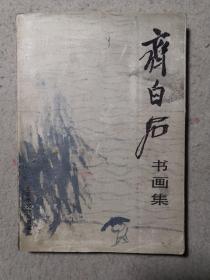 齐白石
书画集